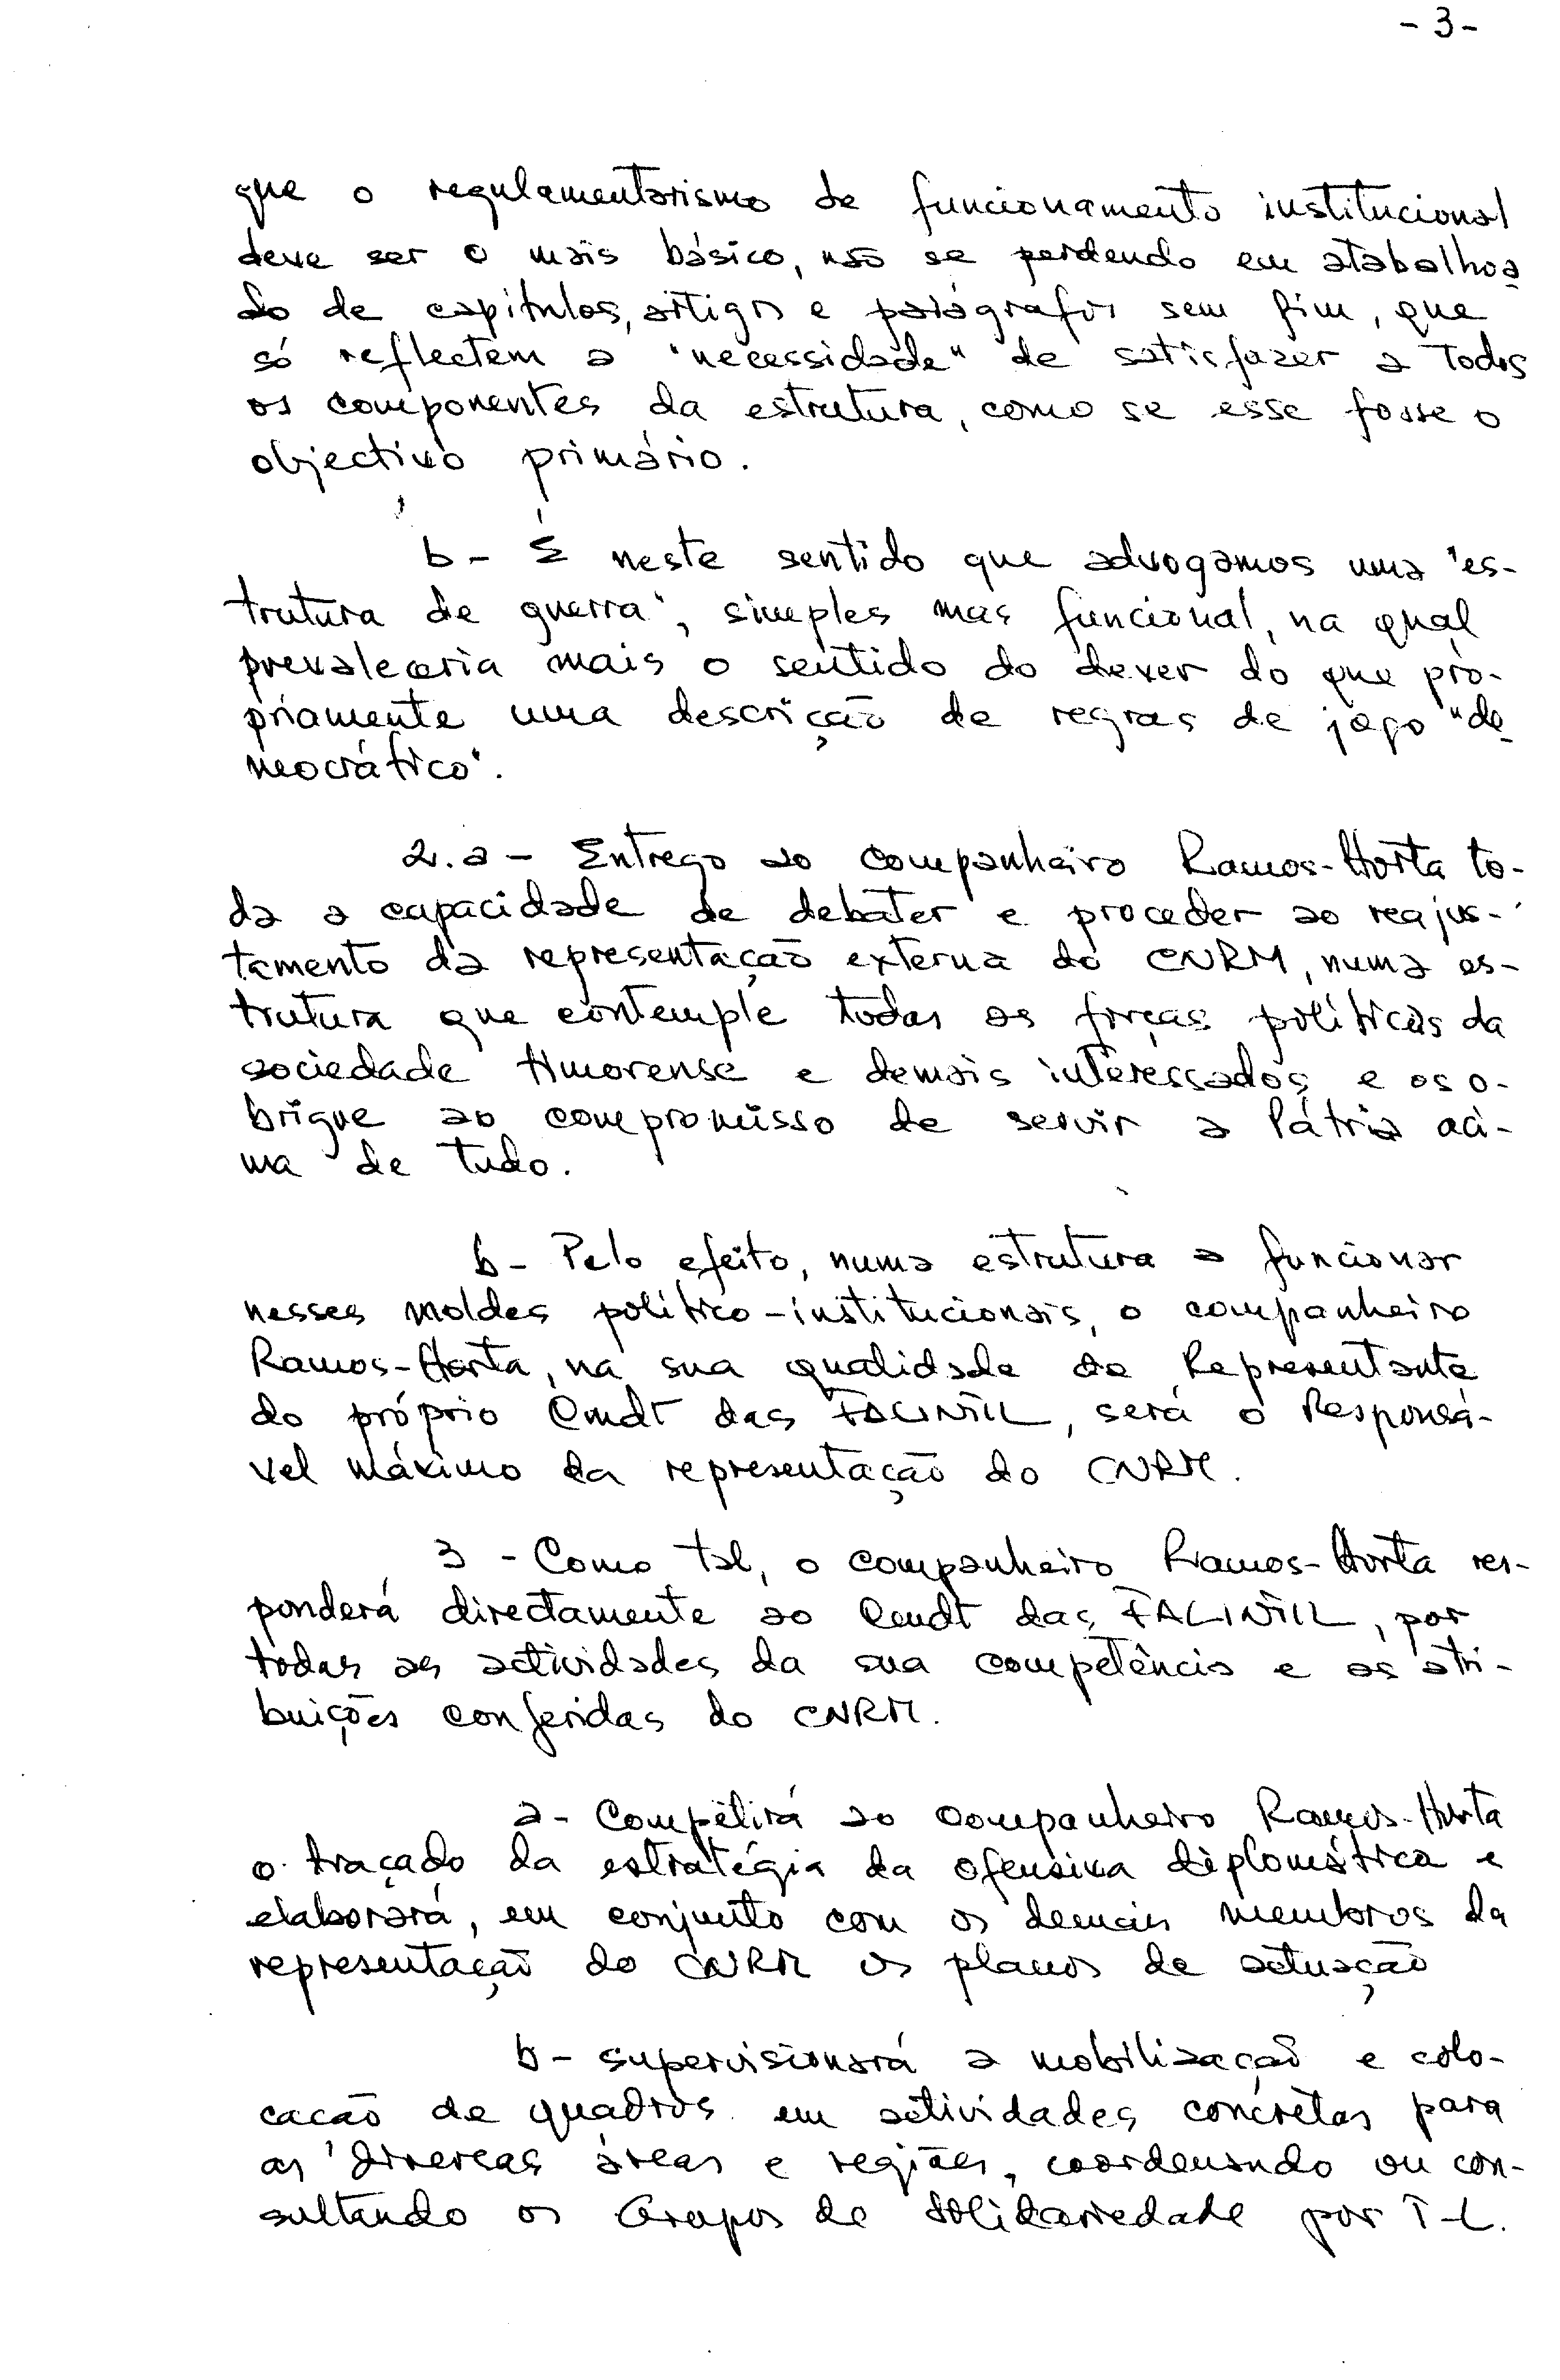 - 3 -
que o regulamentarismo de funcionamento institucional
deve ser o mais básico, não se perdendo em atabalhoa
do de capítulos, artigos e parágrafos sem fim, que
só reflectem a "necessidade" de satisfazer a todos
os componentes da estrutura, como se esse fosse o
objectivo primário.
b - É neste sentido que advogamos uma "es-
trutura de guerra", simples mas funcional, na qual
prevaleceria mais o sentido do dever do que pro-
priamente uma descrição de regras de jogo "de
mocrático".
2. a - Entrego ao companheiro Ramos-Horta to-
da a capacidade de debater e proceder ao reajus-
tamento da representação externa do CNRM, numa es-
trutura que contemple todas as forças políticas da
sociedade timorense e demais interessados e os o-
brigue ao compromisso de servir a Pátria aci-
ma de tudo.
b - Pelo efeito, numa estrutura a funcionar
nesses moldes político-institucionais, o companheiro
Ramos-Horta, na sua qualidade de Representante
do próprio Cmdt das FALINTIL, será o Responsá-
vel máximo da representação do CNRM.
3 - Como tal, o companheiro Ramos-Horta res-
ponderá directamente ao Cmdt das FALINTIL, por
todas as actividades da sua competência e as atri-
buições conferidas do CNRM.
a - Competirá ao companheiro Ramos-Horta
o traçado da estratégia da ofensiva diplomática e
elaborará, em conjunto com os demais membros da
representação do CNRM os planos de actuação
b - supervisionará a mobilização e colo-
cação de quadros em actividades concretas para
as diversas áreas e regiões, coordenando ou con-
sultando os Grupos de Solidariedade por T-L.